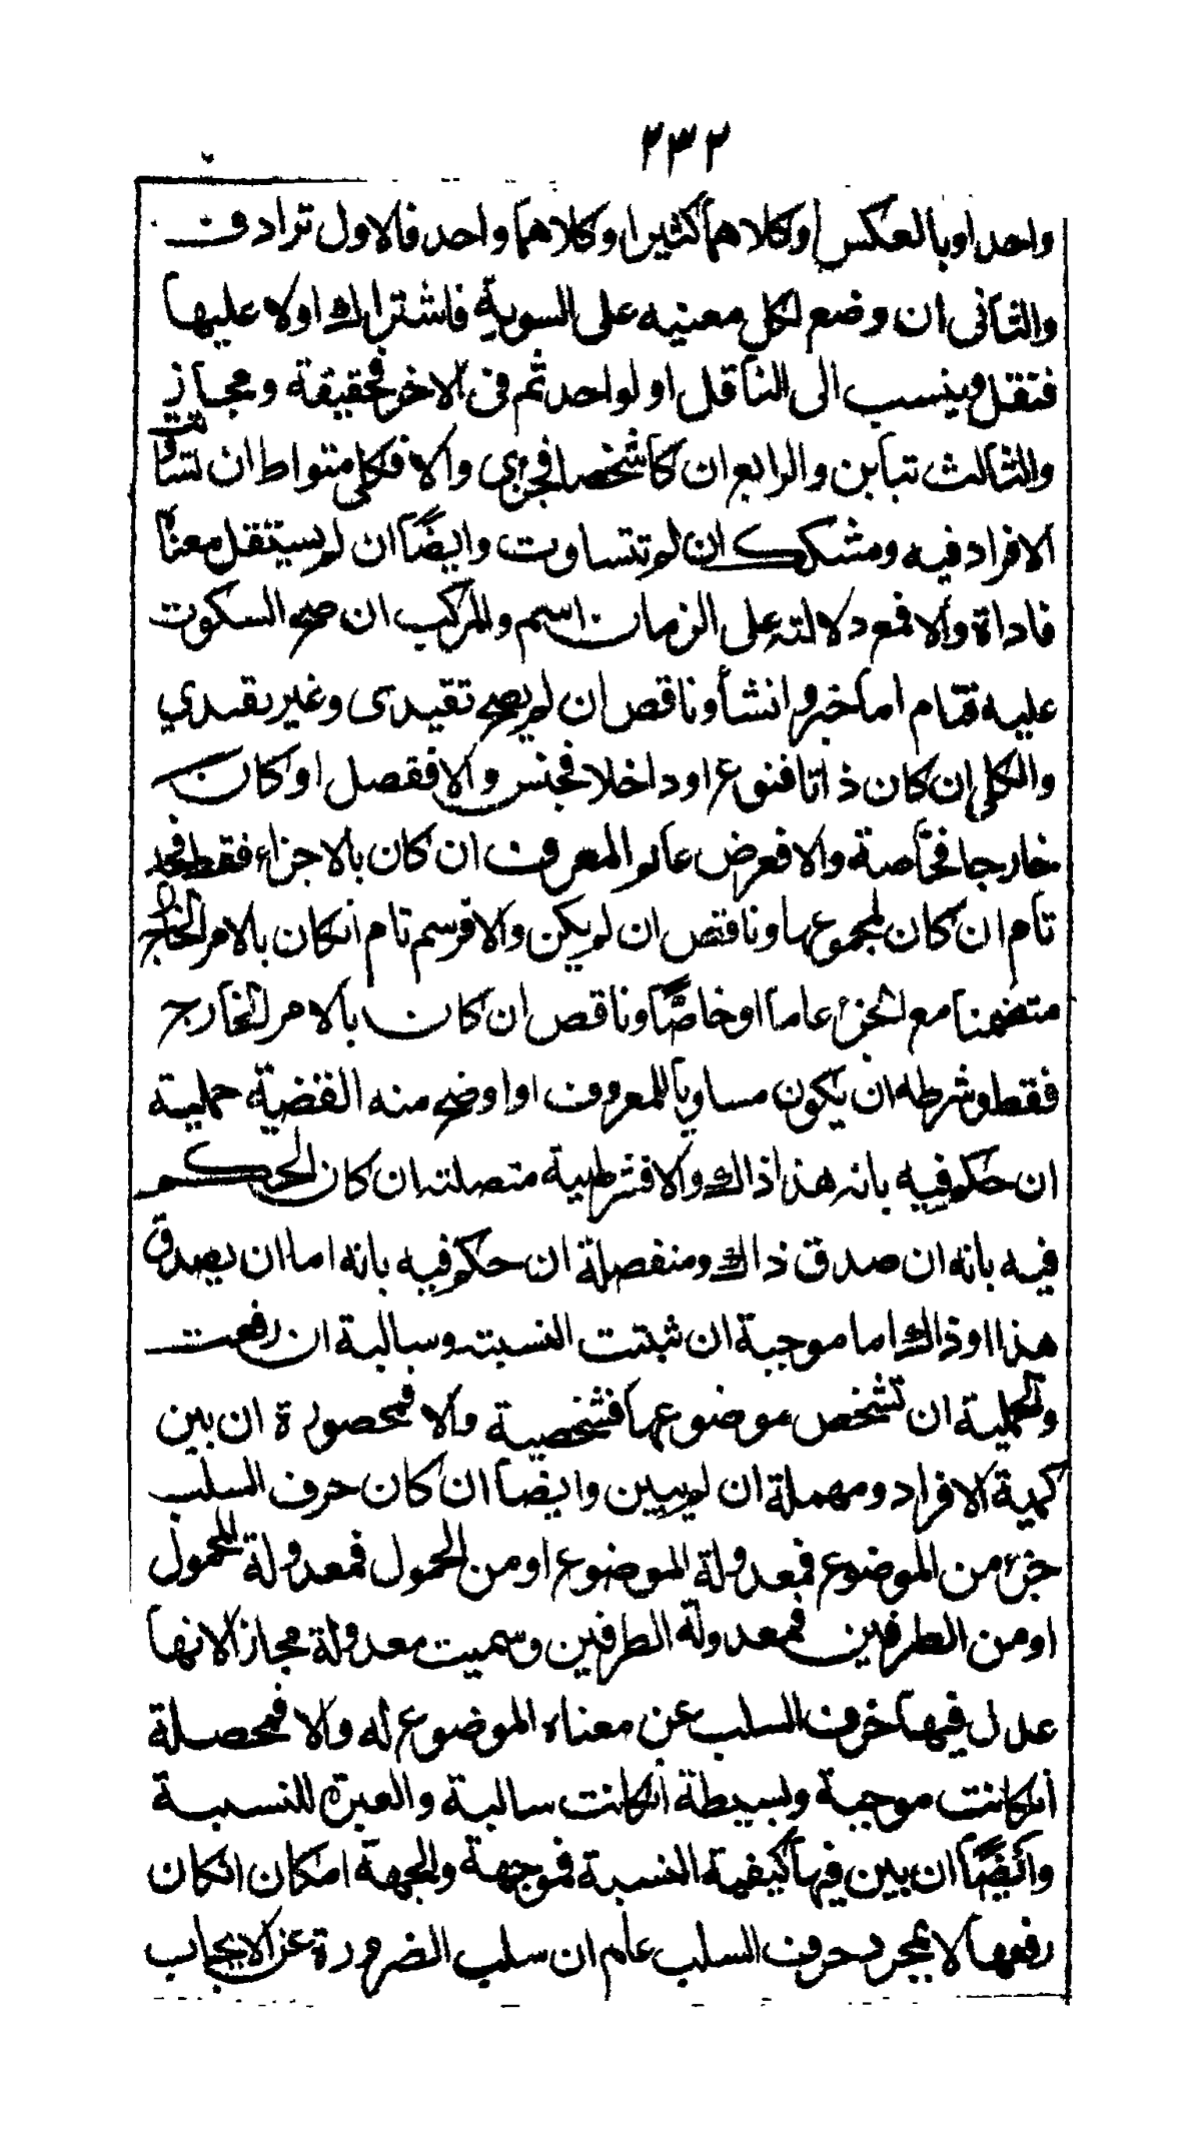 ٢٣٢
واحد او بالعكس او كلاهما كثيرا و كلاهما واحد فالاول ترادف
والثانى ان وضع لكل معنيه على السوية فاشتراك اولا عليها
فتقل وينسب الى الناقل او لواحد ثم فى الاخر فحقيقة ومجاز
والثالث تباين والرابع ان كا شخصا فجزي والا فكلى متواط ان تساوت
الافراد فيه ومشكك ان لم تتساوت وايضًا ان لم يستقل معناه
فاداة والا فمع دلالته على الزمان اسم والمركب ان صح السكوت
عليه فتام اما خبر و انشأ وناقص ان لم يصح تقيدى وغير تقيدي
والكلى ان كان ذاتا فنوع او داخلا فجنس والا فقصل او كان
خارجا فخاصة والا فعرض عام والمعرف ان كان بالاجزاء فقط فحد
تام ان كان لمجموعها وناقص ان لم يكن والا فرسم تام انكان بالامر الخارج
متضمنا مع الجزء عاما او خاصًّا وناقص ان كان بالامر الخارج
فقط وشرطه ان يكون مساويا للمعروف او اوضح منه القضية حملية
ان حكم فيه بانه هذا ذاك والا فشرطيية متصلته ان كان الحكم
فيه بانه ان صدق ذاك ومنفصلة ان حكم فيه بانه اما ان يصدق
هذا او ذاك اما موجبة ان ثبتت النسبته وسالبة ان رفعت
والحملية ان تشخص موضوعها فشخصيية والا فمحصورة ان بين
كمية الافراد ومهملة ان لم يبين وايضا ان كان حرف السلب
جزء من الموضوع فمعدولة الموضوع او من المحمول فمعدولة المحمول
او من الطرفين فمعدولة الطرفين وسميت معدولة مجازا لانها
عدل فيها حرف السلب عن معناه الموضوع له والا فمحصلة
انكانت موجبة وبسيطة انكانت سالبة والعبرة للنسبة
وأيضًا ان بين فيها كيفية النسبة فموجهة والجهة امكان انكان
رفعها لا بمجرد حرف السلب عام ان سلب الضرورة عن الايجاب